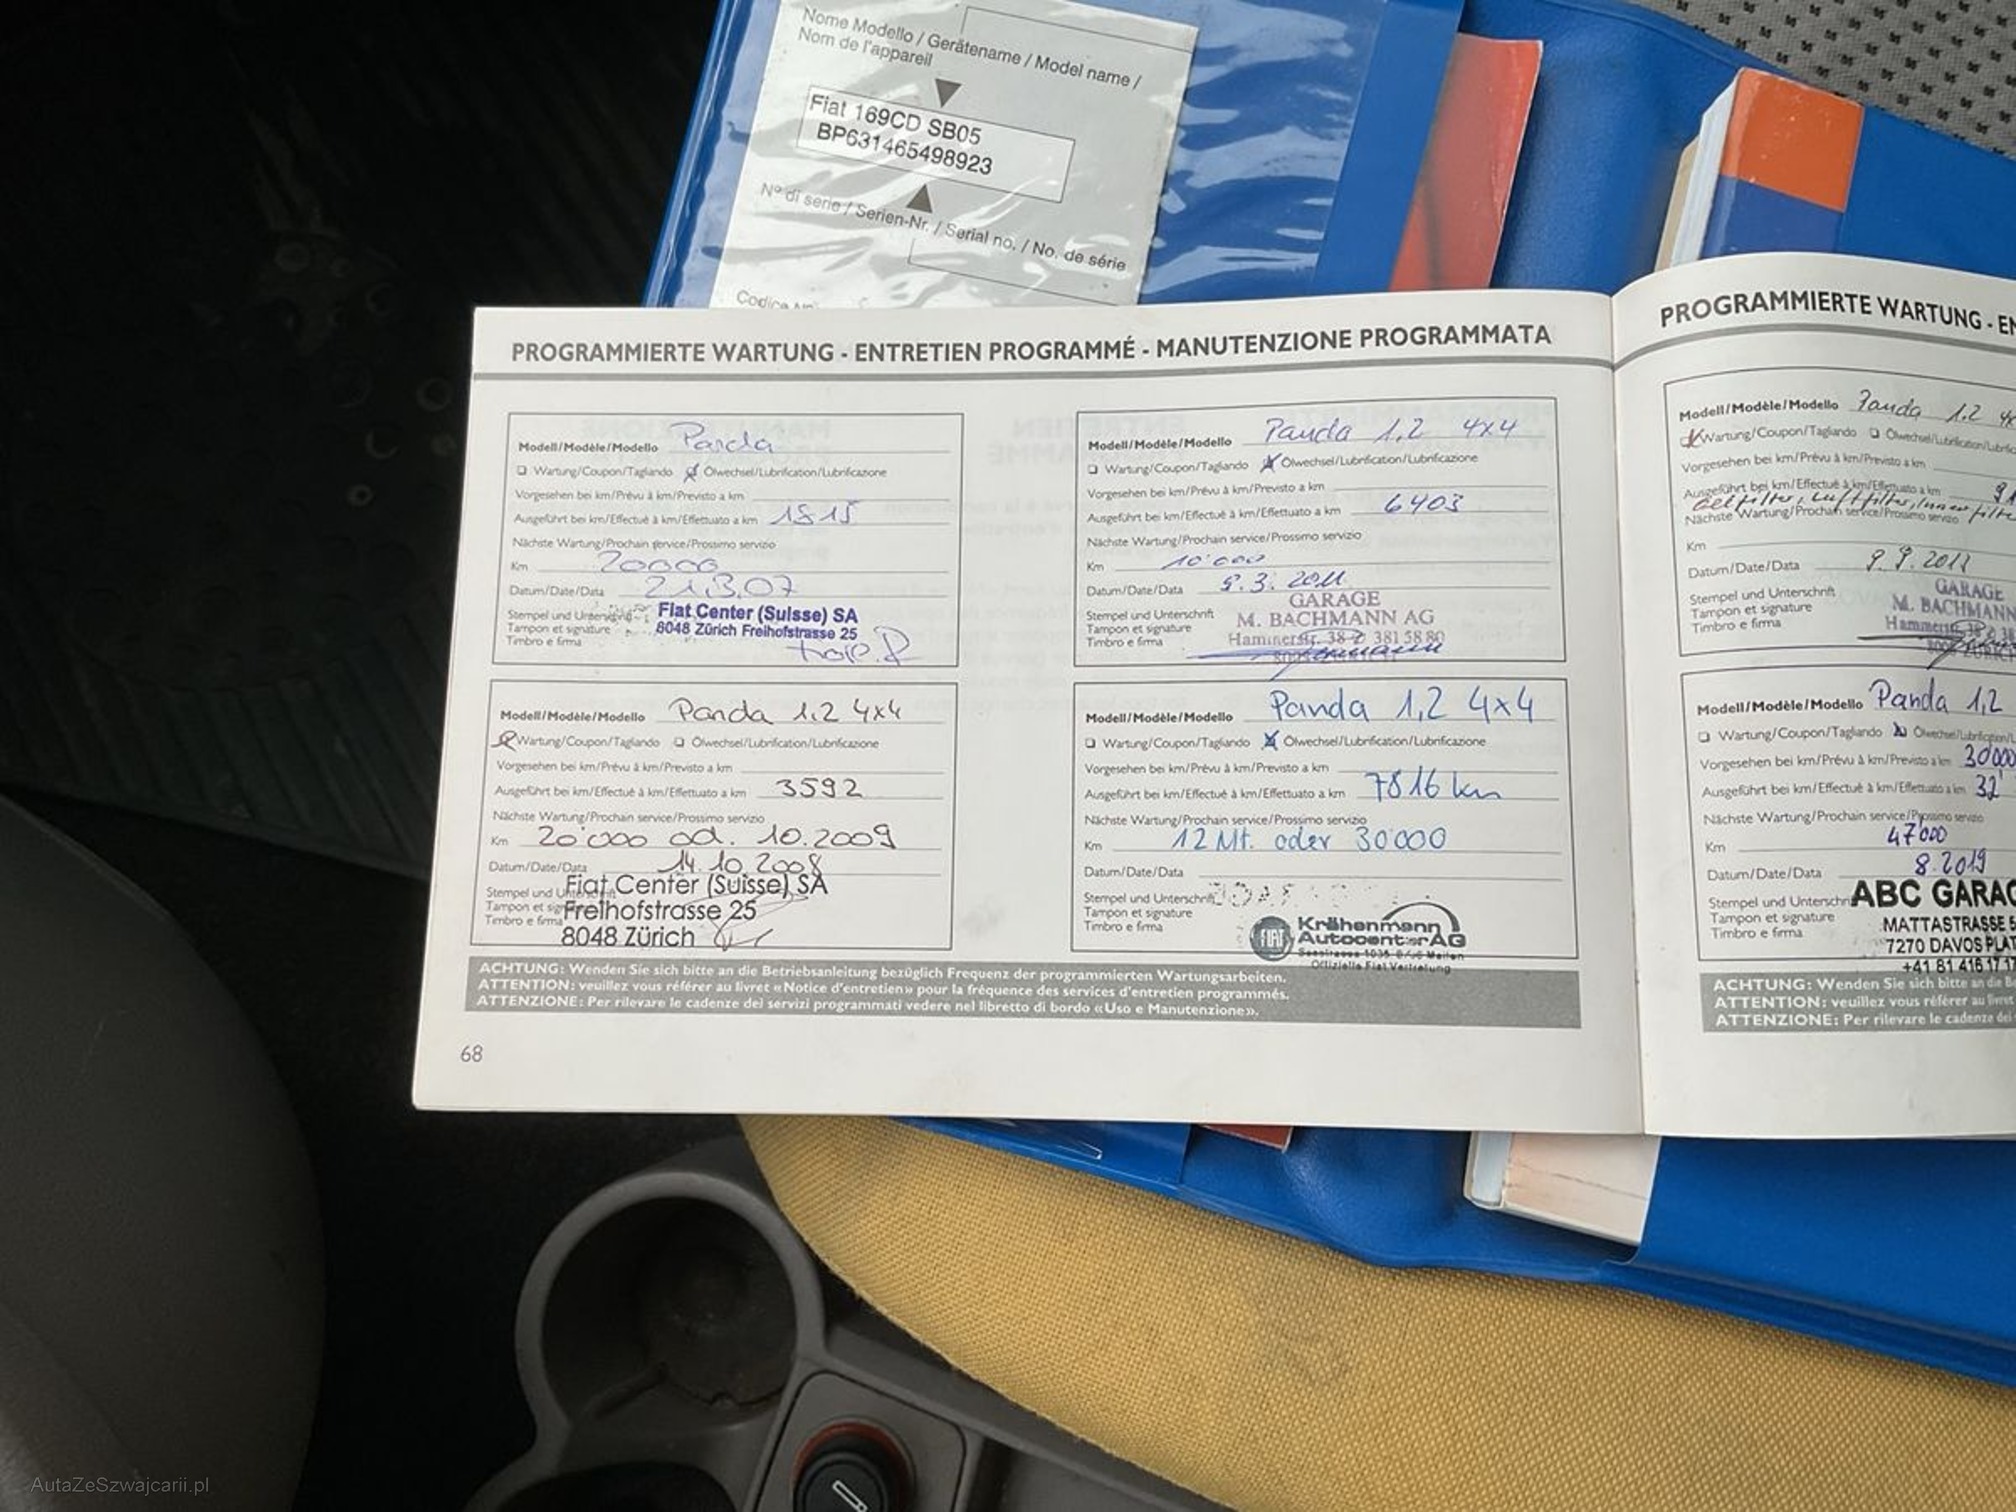 Nome Modello / Gerätename / Model name /
Nom de l'appareil
Fiat 169CD SB05
BP631465498923
N° di serie / Serien-Nr. / Serial no. / No. de série
PROGRAMMIERTE WARTUNG - ENTRETIEN PROGRAMMÉ - MANUTENZIONE PROGRAMMATA
Modell/Modèle/Modello Panda
Wartung/Coupon/Tagliando Ölwechsel/Lubrification/Lubrificazione
Vorgesehen bei km/Prévu à km/Previsto a km
Ausgeführt bei km/Effectué à km/Effettuato a km 1815
Nächste Wartung/Prochain service/Prossimo servizio
Km 20000
Datum/Date/Data 21.3.07
Stempel und Unterschrift Fiat Center (Suisse) SA
Tampon et signature 8048 Zürich Freihofstrasse 25
Timbro e firma
Modell/Modèle/Modello Panda 1,2 4x4
Wartung/Coupon/Tagliando Ölwechsel/Lubrification/Lubrificazione
Vorgesehen bei km/Prévu à km/Previsto a km
Ausgeführt bei km/Effectué à km/Effettuato a km 3592
Nächste Wartung/Prochain service/Prossimo servizio
Km 20'000 od. 10.2009
Datum/Date/Data 14.10.2008
Stempel und Fiat Center (Suisse) SA
Tampon et Freihofstrasse 25
Timbro e firma 8048 Zürich
Modell/Modèle/Modello Panda 1,2 4x4
Wartung/Coupon/Tagliando Ölwechsel/Lubrification/Lubrificazione
Vorgesehen bei km/Prévu à km/Previsto a km
Ausgeführt bei km/Effectué à km/Effettuato a km 6403
Nächste Wartung/Prochain service/Prossimo servizio
Km 10'000
Datum/Date/Data 9.3.2011
GARAGE
Stempel und Unterschrift M. BACHMANN AG
Tampon et signature Hammerstr. 38 381 58 80
Timbro e firma
Modell/Modèle/Modello Panda 1,2 4x4
Wartung/Coupon/Tagliando Ölwechsel/Lubrification/Lubrificazione
Vorgesehen bei km/Prévu à km/Previsto a km
Ausgeführt bei km/Effectué à km/Effettuato a km 7816 km
Nächste Wartung/Prochain service/Prossimo servizio
Km 12 Mt. oder 30'000
Datum/Date/Data
Stempel und Unterschrift
Tampon et signature
Timbro e firma
FIAT Krähenmann
Autocenter AG
Offizielle Fiat Vertretung
ACHTUNG: Wenden Sie sich bitte an die Betriebsanleitung bezüglich Frequenz der programmierten Wartungsarbeiten.
ATTENTION: veuillez vous référer au livret «Notice d'entretien» pour la fréquence des services d'entretien programmés.
ATTENZIONE: Per rilevare le cadenze dei servizi programmati vedere nel libretto di bordo «Uso e Manutenzione».
68
PROGRAMMIERTE WARTUNG - EN
Modell/Modèle/Modello Panda 1,2 4x
Wartung/Coupon/Tagliando Ölwechsel/Lubrification/Lubrific
Vorgesehen bei km/Prévu à km/Previsto a km
Ausgeführt bei km/Effectué à km/Effettuato a km
Oelfilter, Luftfilter, Innenfilter
Nächste Wartung/Prochain service/Prossimo servizio
Km
Datum/Date/Data
GARAGE
Stempel und Unterschrift M. BACHMANN
Tampon et signature Hammerstr. 38
Timbro e firma
Modell/Modèle/Modello Panda 1,2
Wartung/Coupon/Tagliando Ölwechsel/Lubrification/L
Vorgesehen bei km/Prévu à km/Previsto a km 30000
Ausgeführt bei km/Effectué à km/Effettuato a km 32'
Nächste Wartung/Prochain service/Prossimo servizio
Km 47'000
Datum/Date/Data 8.2019
Stempel und Unterschr ABC GARAG
Tampon et signature MATTASTRASSE 5
Timbro e firma 7270 DAVOS PLAT
+41 81 416 17 17
ACHTUNG: Wenden Sie sich bitte an die Be
ATTENTION: veuillez vous référer au livret
ATTENZIONE: Per rilevare le cadenze dei
AutaZeSzwajcarii.pl